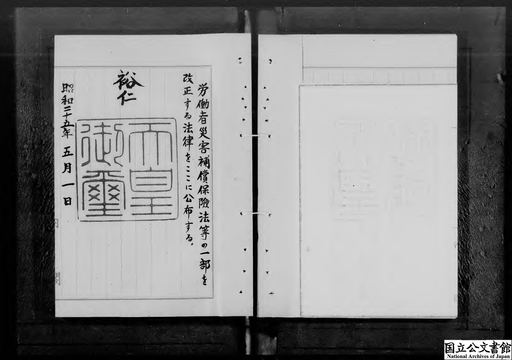 労働者災害補償保険法等の一部を
改正する法律をここに公布する。
裕仁
天皇
御璽
昭和二十五年五月一日
国立公文書館
National Archives of Japan